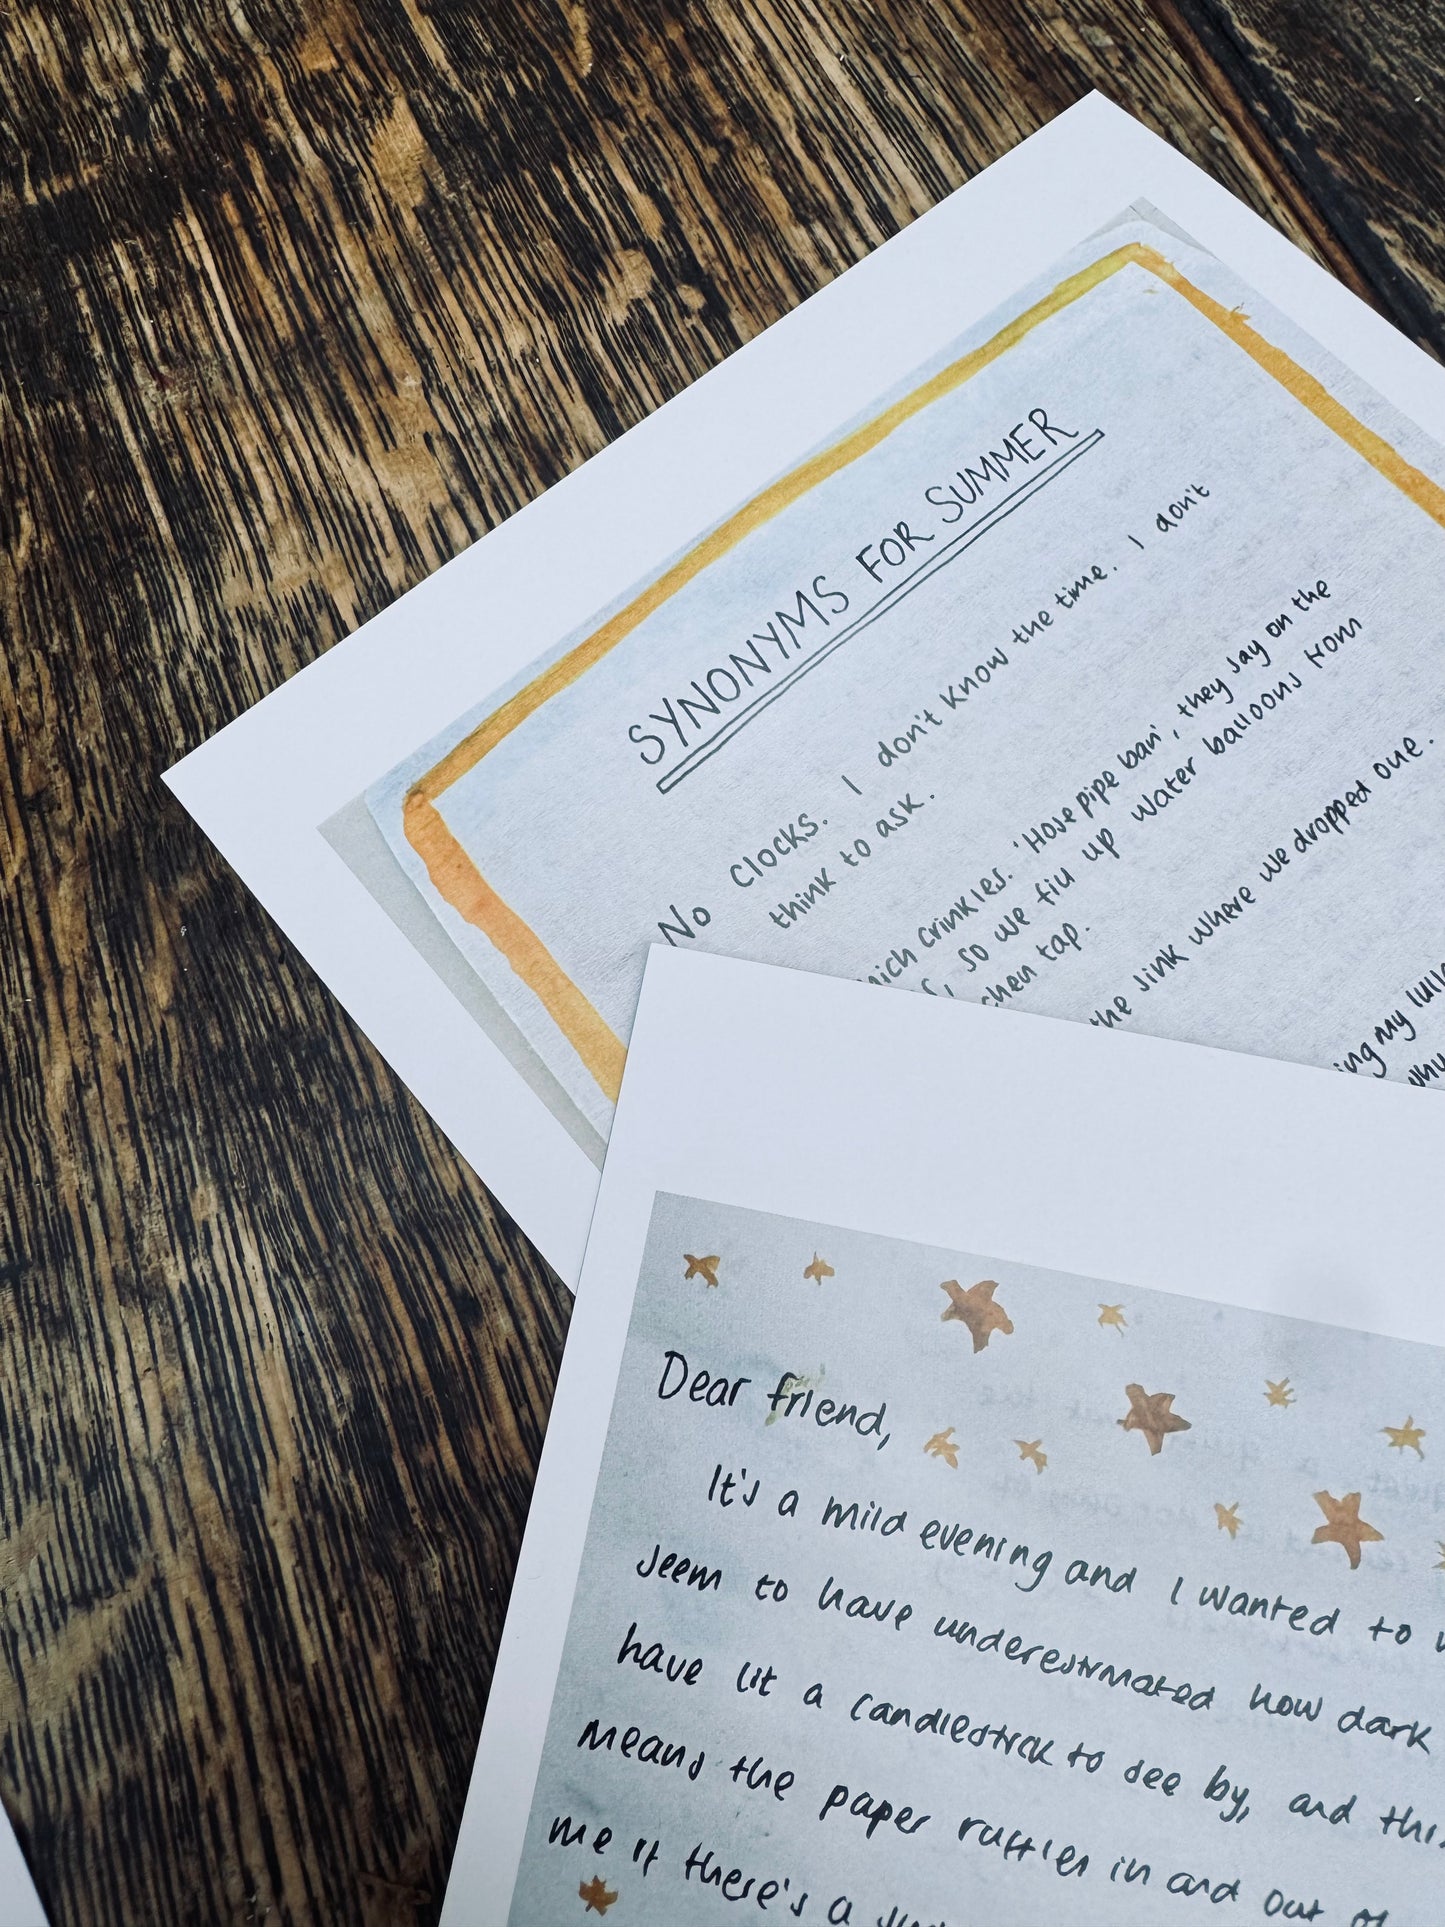 SYNONYMS FOR SUMMER
No clocks. I don't know the time. I don't
think to ask.
crinkles. 'Hose pipe ban', they say on the
so we fill up water balloons from
tap.
the sink where we dropped one.
my
Dear friend,
It's a mild evening and I wanted to
seem to have underestimated how dark
have lit a candlestick to see by, and this
means the paper ruffles in and out of
me if there's a